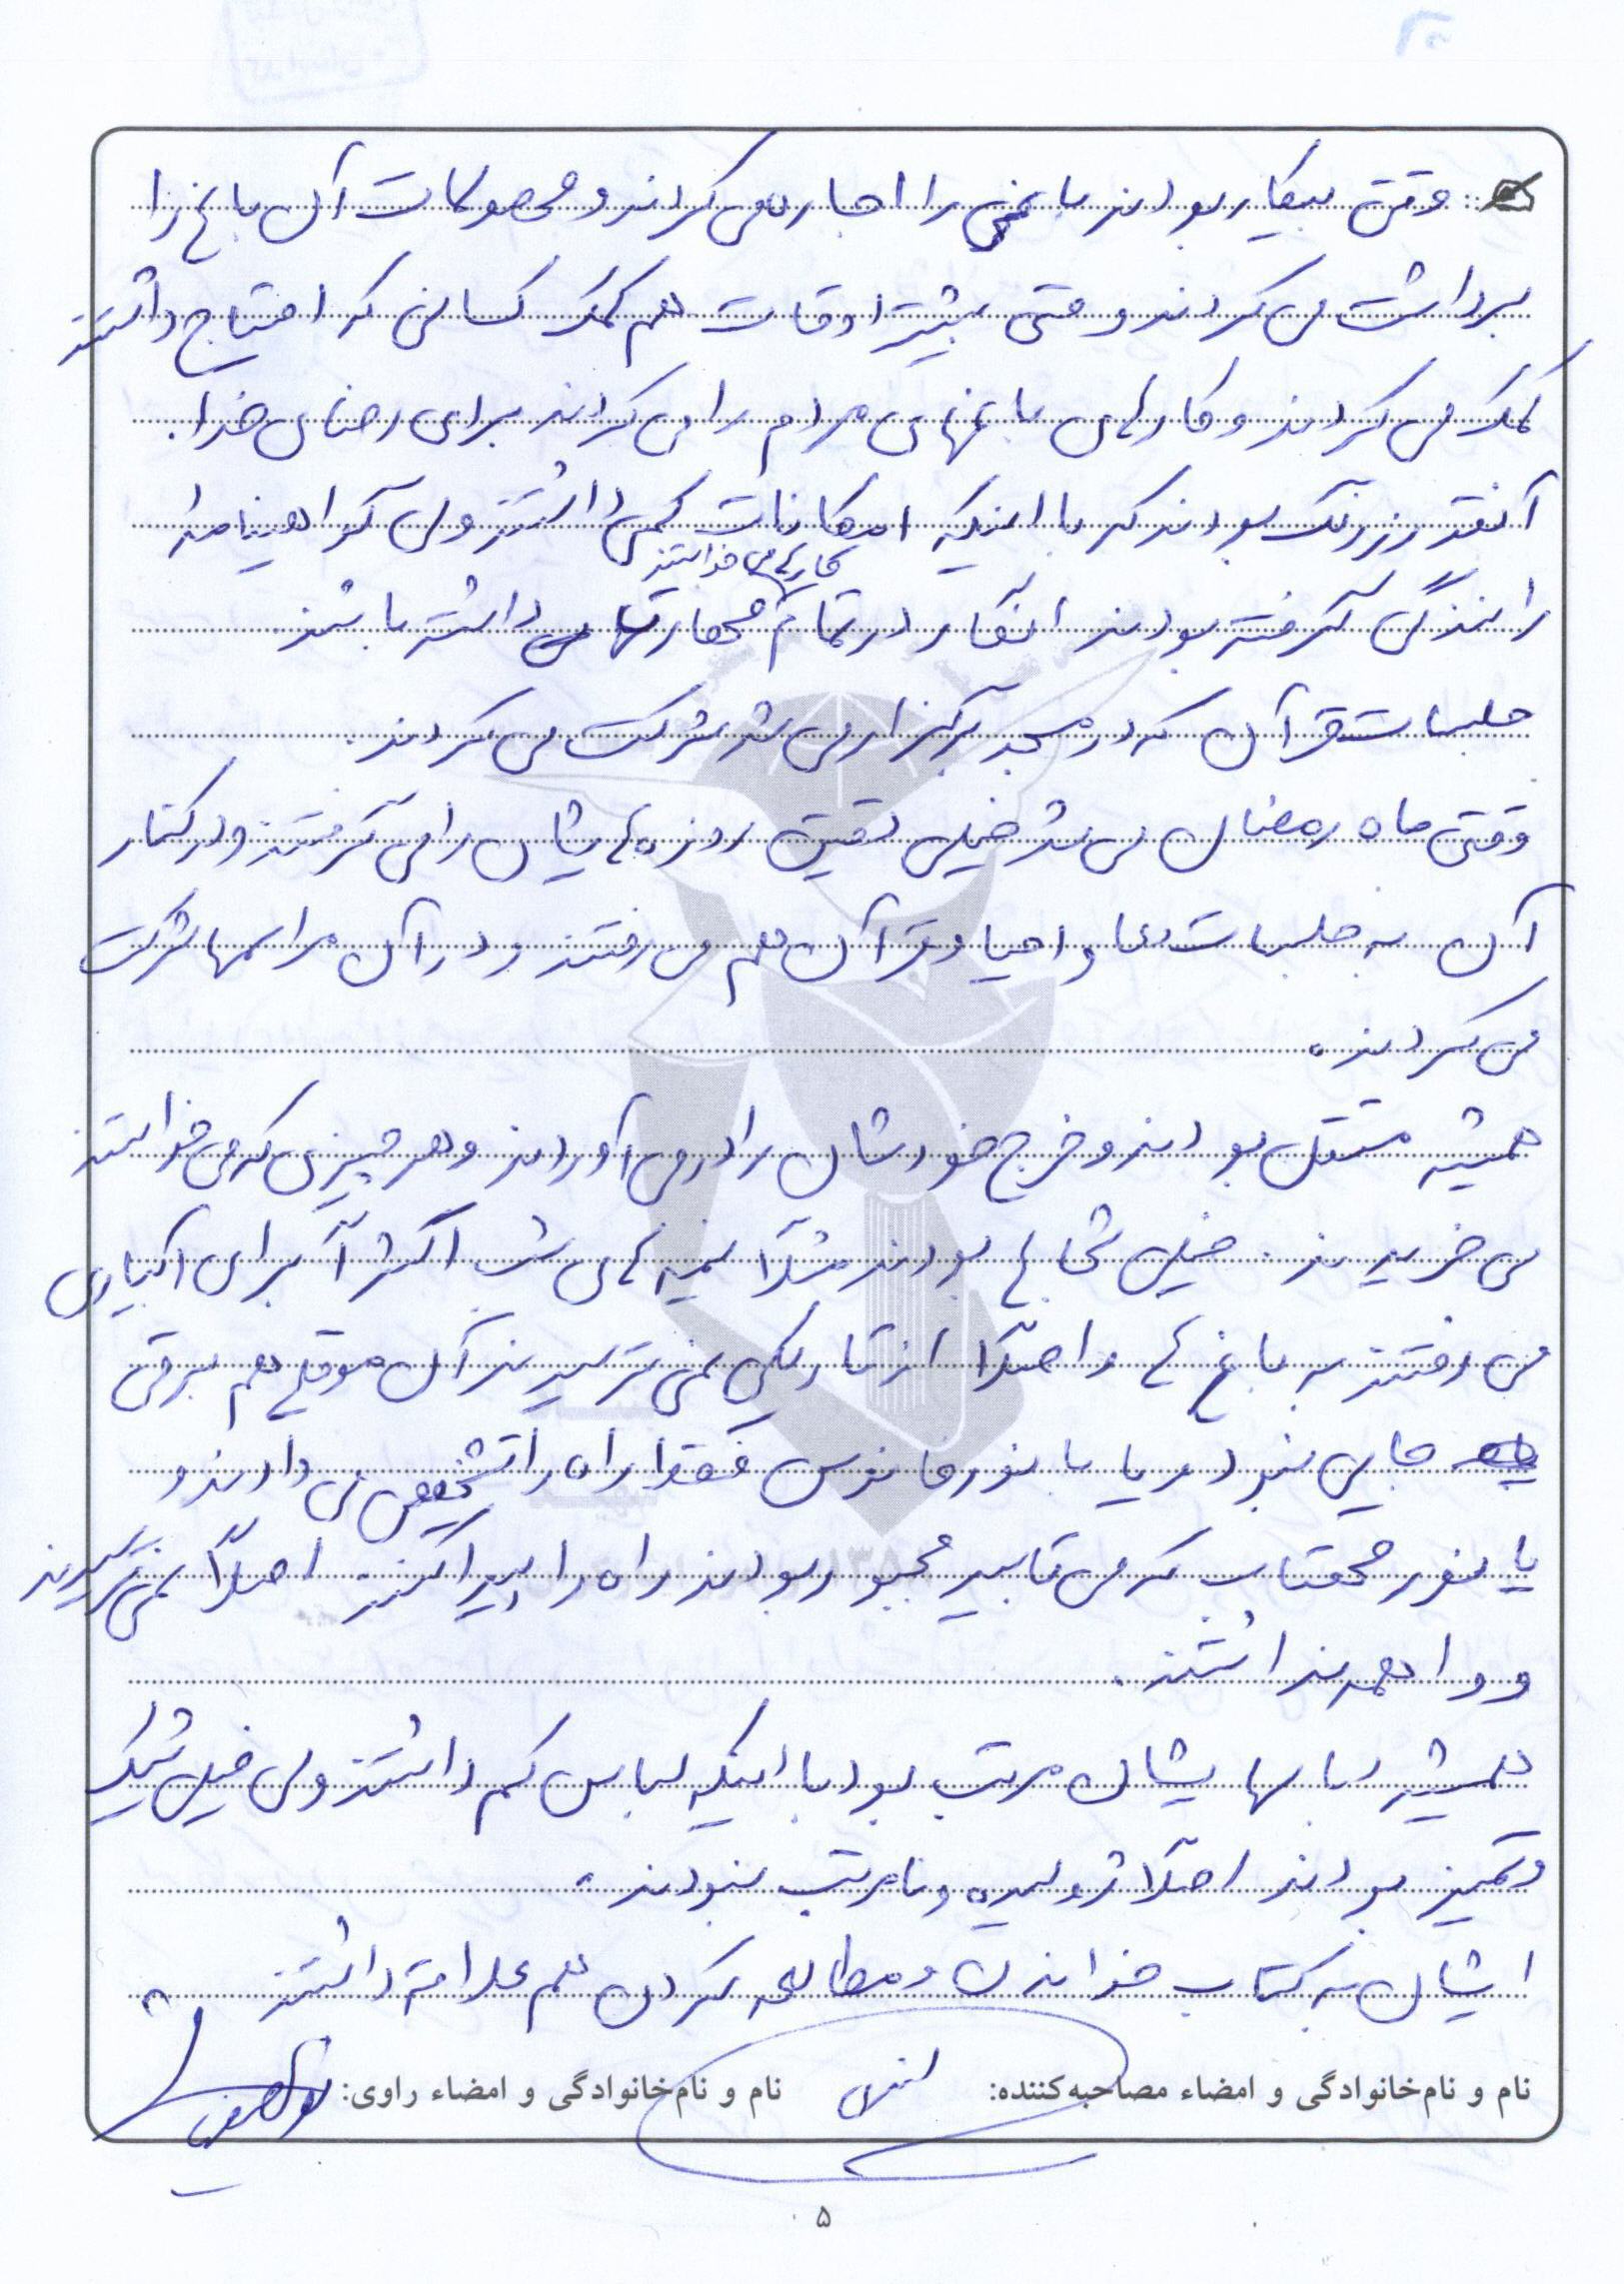 وقتی بیکار بودند باغی را اجاره می کردند و محصولات آن باغ را
برداشت می کردند و حتی بیشتر اوقات هم کمک کسانی که احتیاج داشتند
کمک می کردند و کارهای باغهای مردم را می کردند برای رضای خدا.
آنقدر زرنگ بودند که با اینکه امکانات کمی داشتند ولی گواهینامه
رانندگی گرفته بودند انگار در تمام کارها می خواستند مهارتها داشته باشند.
جلسات قرآن که در مسجد برگزار می شد شرکت می کردند.
وقتی ماه رمضان می شد خیلی دقیق روزه هایشان را می گرفتند و در کنار
آن به جلسات دعا و احیا و قرآن هم می رفتند و در آن مراسمها شرکت
می کردند.
همیشه مستقل بودند و خرج خودشان را در می آوردند و هر چیزی که می خواستند
می خریدند. خیلی شجاع بودند مثلاً نیمه های شب اکثراً برای آبیاری
می رفتند به باغ ها و اصلاً از تاریکی نمی ترسیدند آن موقع هم برقی
جایی نبود و یا با نور فانوس فقط راه را تشخیص می دادند و
یا نور محتاب که می تابید مجبور بودند راه را پیدا کنند اصلاً نمی ترسیدند
و واهمه نداشتند.
همیشه لباسهایشان مرتب بود با اینکه لباس کم داشتند ولی خیلی شیک
و تمیز بودند اصلاً ژولیده و نامرتب نبودند.
ایشان به کتاب خواندن و مطالعه کردن هم علاقه داشتند.
نام و نام‌خانوادگی و امضاء مصاحبه‌کننده: نام و نام‌خانوادگی و امضاء راوی:
۵